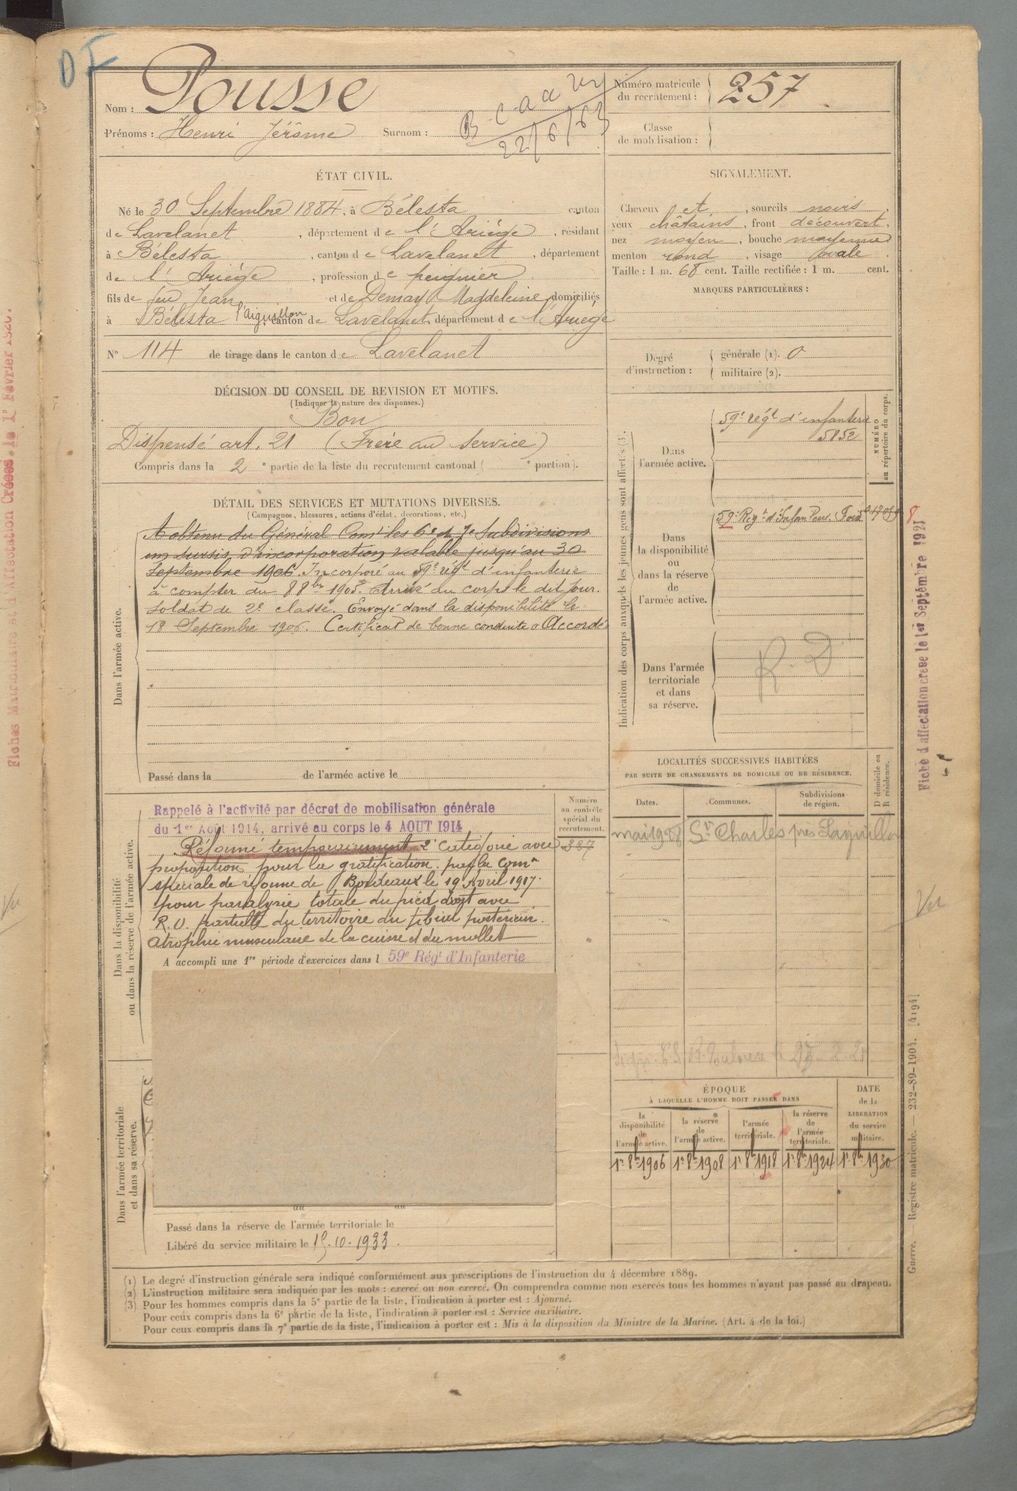 DF
Nom : Pousse
Prénoms : Henri Jérôme Surnom :
22/6/63
Numéro matricule du recrutement : 257
Classe de mobilisation :
ÉTAT CIVIL.
Né le 30 Septembre 1884, à Bélesta canton
de Lavelanet, département de l'Ariège, résidant
à Bélesta, canton de Lavelanet, département
de l'Ariège, profession de peignier
fils de feu Jean et de Demay Magdeleine, domiciliés
à Bélesta l'aiguillon, canton de Lavelanet, département de l'Ariège
N° 114 de tirage dans le canton de Lavelanet
SIGNALEMENT.
Cheveux et, sourcils noirs
yeux châtains, front découvert
nez moyen, bouche moyenne
menton rond, visage ovale
Taille : 1 m. 68 cent. Taille rectifiée : 1 m. cent.
MARQUES PARTICULIÈRES :
Degré d'instruction : générale (1). 0
militaire (2).
DÉCISION DU CONSEIL DE REVISION ET MOTIFS.
(Indiquer la nature des dispenses.)
Bon
Dispensé art. 21 (Frère au service)
Compris dans la 2e partie de la liste du recrutement cantonal ( e portion).
DÉTAIL DES SERVICES ET MUTATIONS DIVERSES.
(Campagnes, blessures, actions d'éclat, décorations, etc.)
Dans l'armée active.
A obtenu du Général Comt les 6e et 7e Subdivisions
un sursis d'incorporation valable jusqu'au 30
Septembre 1906. Incorporé au 59e régt d'infanterie
à compter du 8 8bre 1905. Arrivé au corps le dit jour.
Soldat de 2e classe. Envoyé dans la disponibilité le
18 Septembre 1906. Certificat de bonne conduite "Accordé"
Passé dans la de l'armée active le
Indication des corps auxquels les jeunes gens sont affectés (3).
NUMÉRO au répertoire du corps.
Dans l'armée active.
59e régt d'infanterie
5852
Dans la disponibilité ou dans la réserve de l'armée active.
59e Regt d'Infan
Dans l'armée territoriale et dans sa réserve.
R. D
Dans la disponibilité ou dans la réserve de l'armée active.
Rappelé à l'activité par décret de mobilisation générale
du 1er Août 1914, arrivé au corps le 4 AOUT 1914
Réformé temporairement 2e catégorie avec
proposition pour la gratification par la Comon
spéciale de réforme de Bordeaux le 19 Avril 1917.
pour paralysie totale du pied droit avec
R.D. partielle du territoire du tibial postérieur.
atrophie musculaire de la cuisse et du mollet
A accompli une 1re période d'exercices dans l 59e Régt d'Infanterie
Numéro au contrôle spécial du recrutement.
LOCALITÉS SUCCESSIVES HABITÉES
PAR SUITE DE CHANGEMENTS DE DOMICILE OU DE RÉSIDENCE.
Dates. Communes. Subdivisions de région. D domicile ou R résidence.
St Charles près
Dans l'armée territoriale et dans sa réserve.
au au
Passé dans la réserve de l'armée territoriale le
Libéré du service militaire le 15-10-1933.
ÉPOQUE
À LAQUELLE L'HOMME DOIT PASSER DANS
la disponibilité de l'armée active. la réserve de l'armée active. l'armée territoriale. la réserve de l'armée territoriale. DATE de la LIBÉRATION du service militaire.
1er 8bre 1906 1er 8bre 1908 1er 8bre 1918 1er 8bre 1924 1er 8bre 1930
(1) Le degré d'instruction générale sera indiqué conformément aux prescriptions de l'instruction du 4 décembre 1889.
(2) L'instruction militaire sera indiquée par les mots : exercé ou non exercé. On comprendra comme non exercés tous les hommes n'ayant pas passé au drapeau.
(3) Pour les hommes compris dans la 5e partie de la liste, l'indication à porter est : Ajourné.
Pour ceux compris dans la 6e partie de la liste, l'indication à porter est : Service auxiliaire.
Pour ceux compris dans la 7e partie de la liste, l'indication à porter est : Mis à la disposition du Ministre de la Marine. (Art. 4 de la loi.)
Fiche d'affectation créée le 1er Septembre 1921
Vu
Guerre. Registre matricule. — 232-89-1904. [4194]